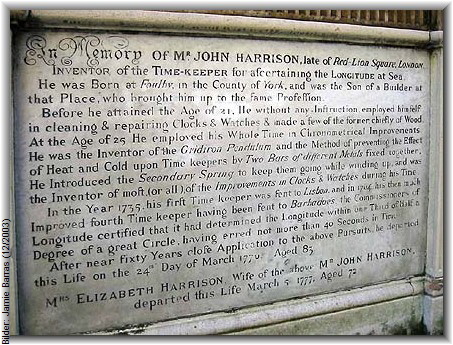 In Memory of Mr JOHN HARRISON, late of Red-Lion Square, LONDON,
INVENTOR of the TIME-KEEPER for ascertaining the LONGITUDE at Sea.
He was Born at Foulby, in the County of York, and was the Son of a Builder at
that Place, who brought him up to the same Profession.
Before he attained the Age of 21, He without any Instruction employed himself
in cleaning & repairing Clocks & Watches & made a few of the former chiefly of Wood.
At the Age of 25 He employed his Whole Time in Chronometrical Improvements
He was the Inventor of the Gridiron Pendulum, and the Method of preventing the Effect
of Heat and Cold upon Time keepers by Two Bars of different Metals fixed together,
He Introduced the Secondary Spring to keep them going while winding up, and was
the Inventor of most (or all) of the Improvements in Clocks & Watches during his Time
In the Year 1735, his first Time keeper was sent to Lisbon, and in 1764, his then much
Improved fourth Time keeper having been sent to Barbadoes the Commissioners of
Longitude certified that it had determined the Longitude within one Third of Half a
Degree of a great Circle, having erred not more than 40 Seconds in Time.
After near sixty Years close Application to the above Pursuits, he departed
this Life on the 24th Day of March 1776 Aged 83
Mrs ELIZABETH HARRISON Wife of the above Mr JOHN HARRISON,
departed this Life March 5 1777, Aged 72
Bilder: Jamie Barras (12/2003)